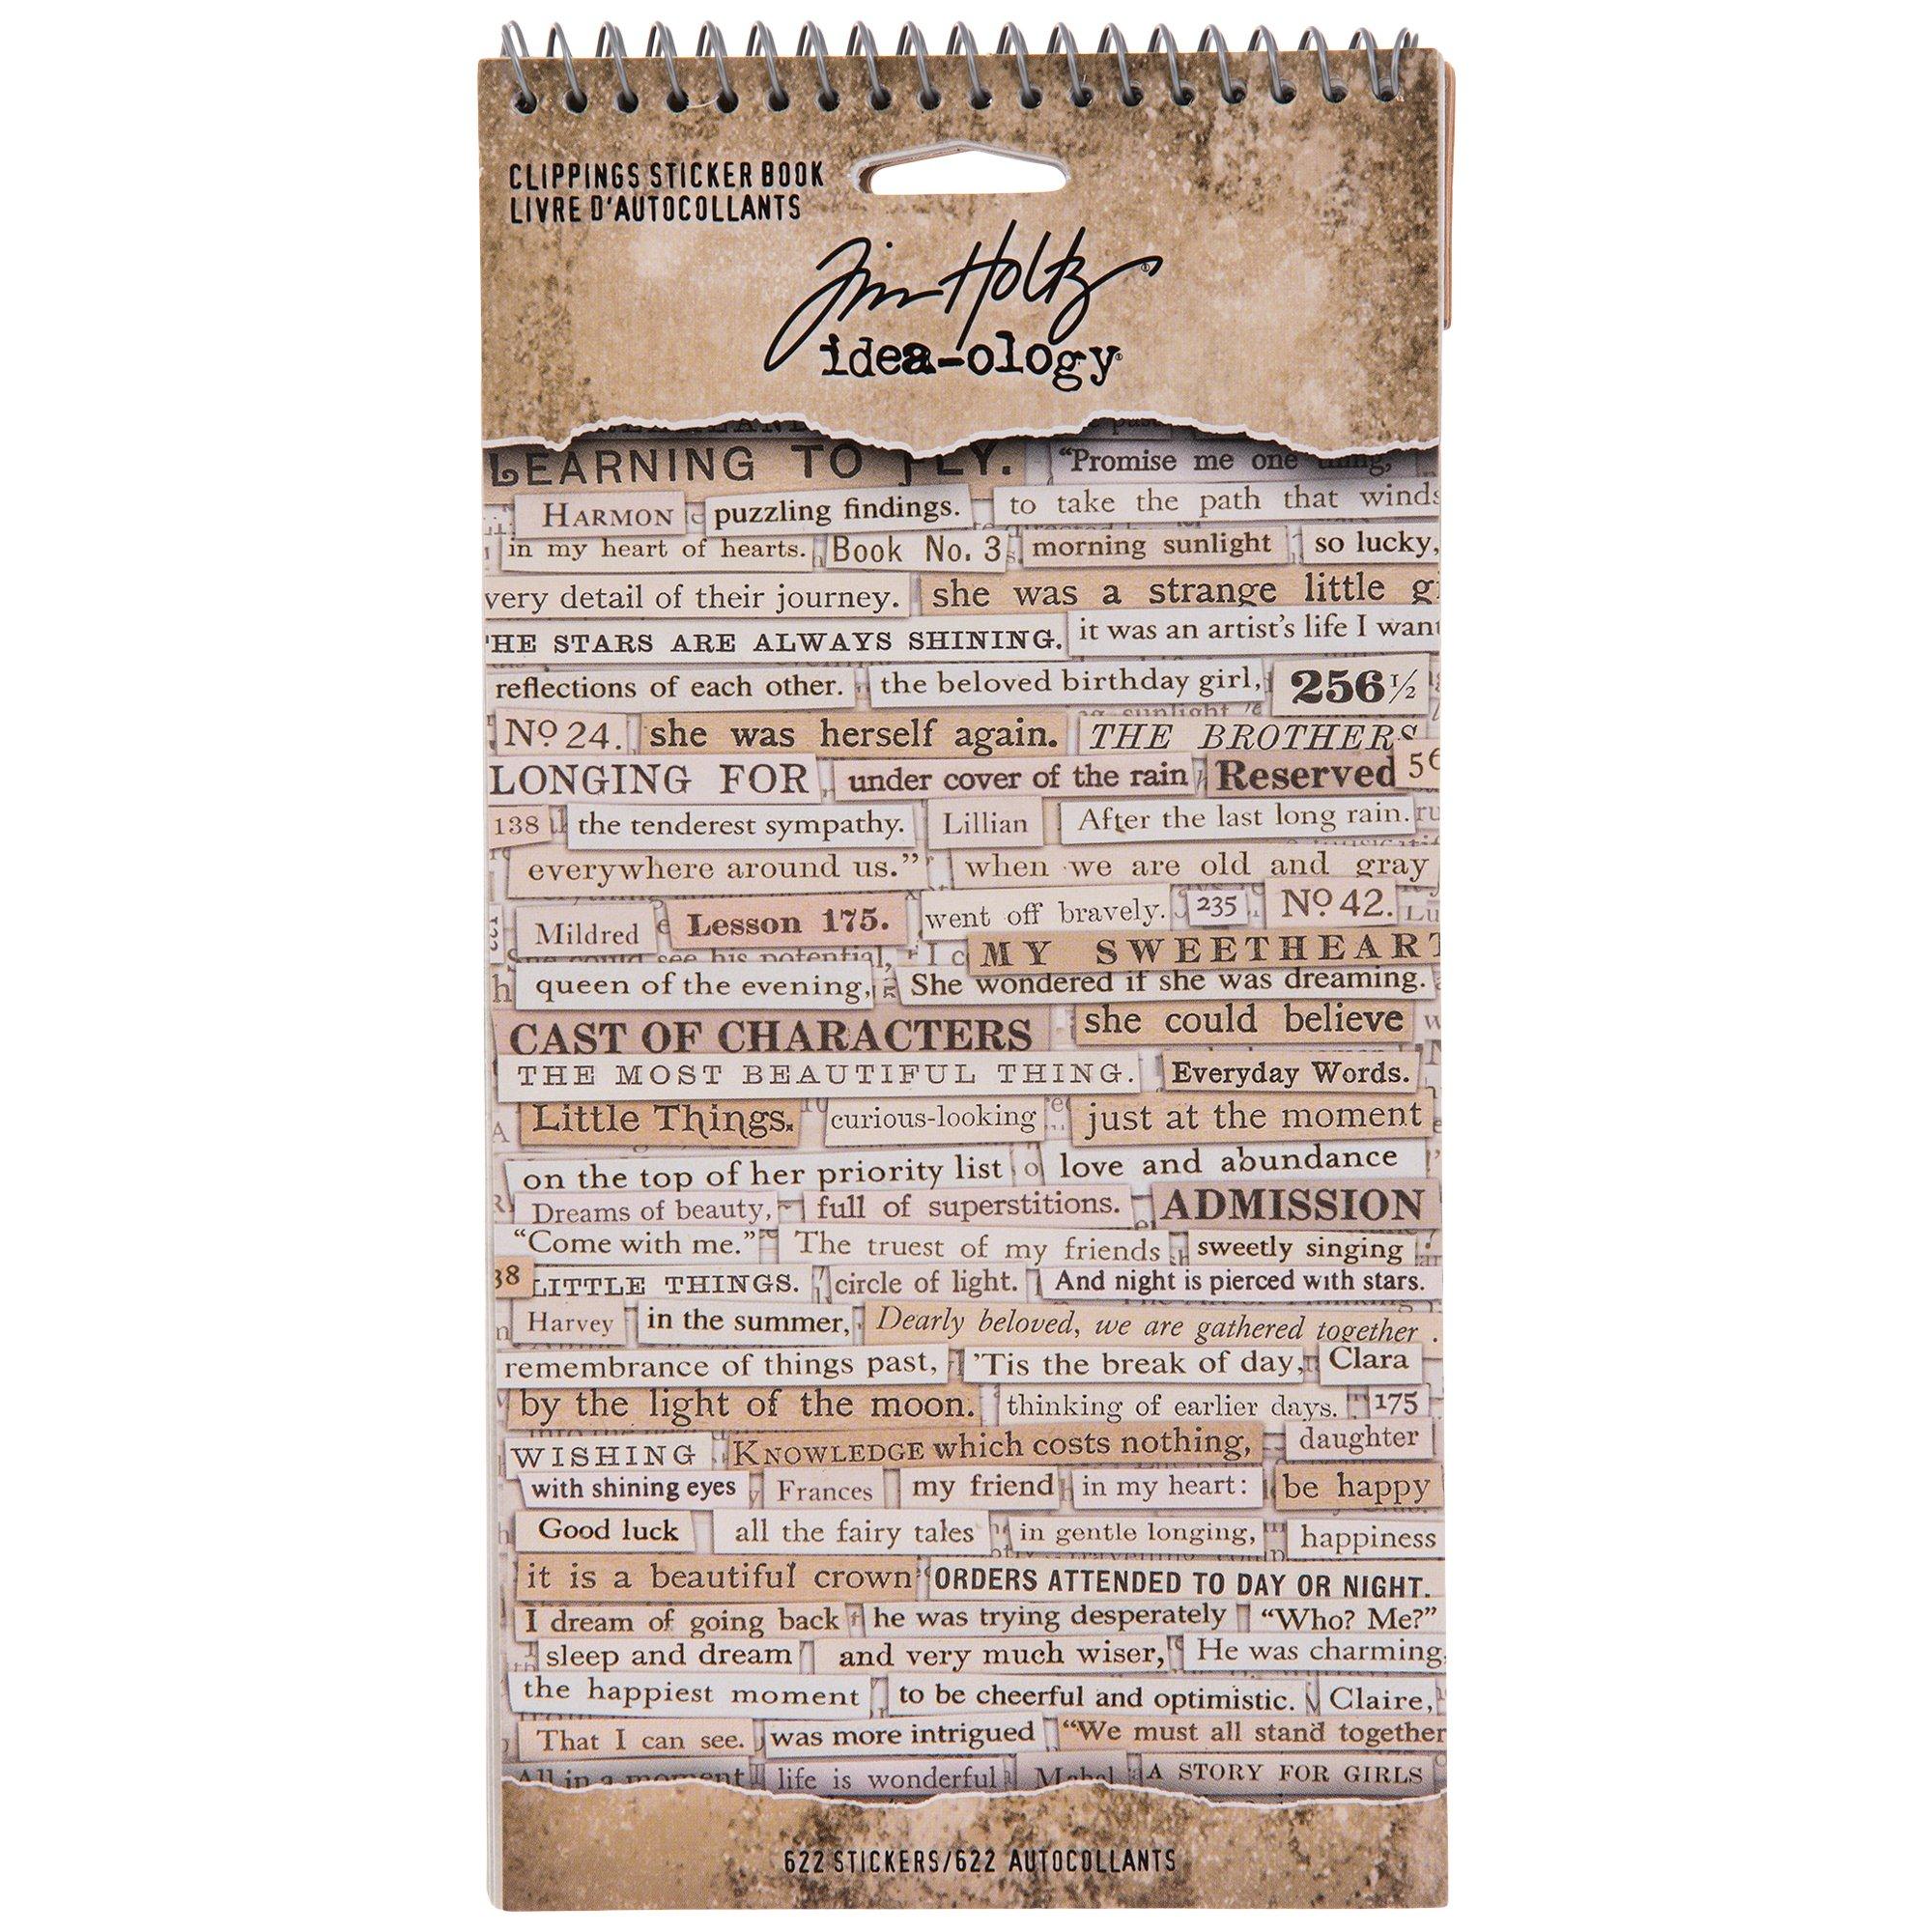 CLIPPINGS STICKER BOOK
LIVRE D'AUTOCOLLANTS
Tim Holtz
idea-ology
LEARNING TO FLY. "Promise me one thing,
HARMON puzzling findings. to take the path that winds
in my heart of hearts. Book No. 3 morning sunlight so lucky,
very detail of their journey. she was a strange little gi
HE STARS ARE ALWAYS SHINING. it was an artist's life I want
reflections of each other. the beloved birthday girl, 256 1/2
No 24. she was herself again. THE BROTHERS
LONGING FOR under cover of the rain Reserved 56
138 the tenderest sympathy. Lillian After the last long rain.
everywhere around us." when we are old and gray
Mildred Lesson 175. went off bravely. 235 No 42.
She could see his potential, I c MY SWEETHEART
queen of the evening, She wondered if she was dreaming.
CAST OF CHARACTERS she could believe
THE MOST BEAUTIFUL THING. Everyday Words.
Little Things. curious-looking just at the moment
on the top of her priority list love and abundance
Dreams of beauty, full of superstitions. ADMISSION
"Come with me." The truest of my friends sweetly singing
38 LITTLE THINGS. circle of light. And night is pierced with stars.
Harvey in the summer, Dearly beloved, we are gathered together
remembrance of things past, 'Tis the break of day, Clara
by the light of the moon. thinking of earlier days. 175
WISHING KNOWLEDGE which costs nothing, daughter
with shining eyes Frances my friend in my heart: be happy
Good luck all the fairy tales in gentle longing, happiness
it is a beautiful crown ORDERS ATTENDED TO DAY OR NIGHT.
I dream of going back he was trying desperately "Who? Me?"
sleep and dream and very much wiser, He was charming,
the happiest moment to be cheerful and optimistic. Claire,
That I can see. was more intrigued "We must all stand together
All in a moment life is wonderful Mabel A STORY FOR GIRLS
622 STICKERS/622 AUTOCOLLANTS